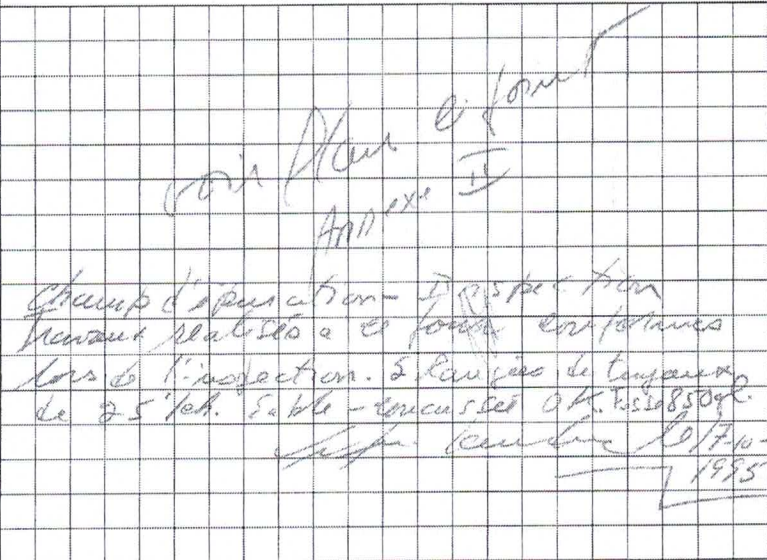 voir Plan ci joint
Annexe II
Champ d'épuration - Inspection
Travaux réalisés à ce jour conformes
lors de l'inspection. 5 rangées de tuyaux
de 25' /ch. Sable - concassée OK. Fosse 850 gl.
le 17-10-
1995